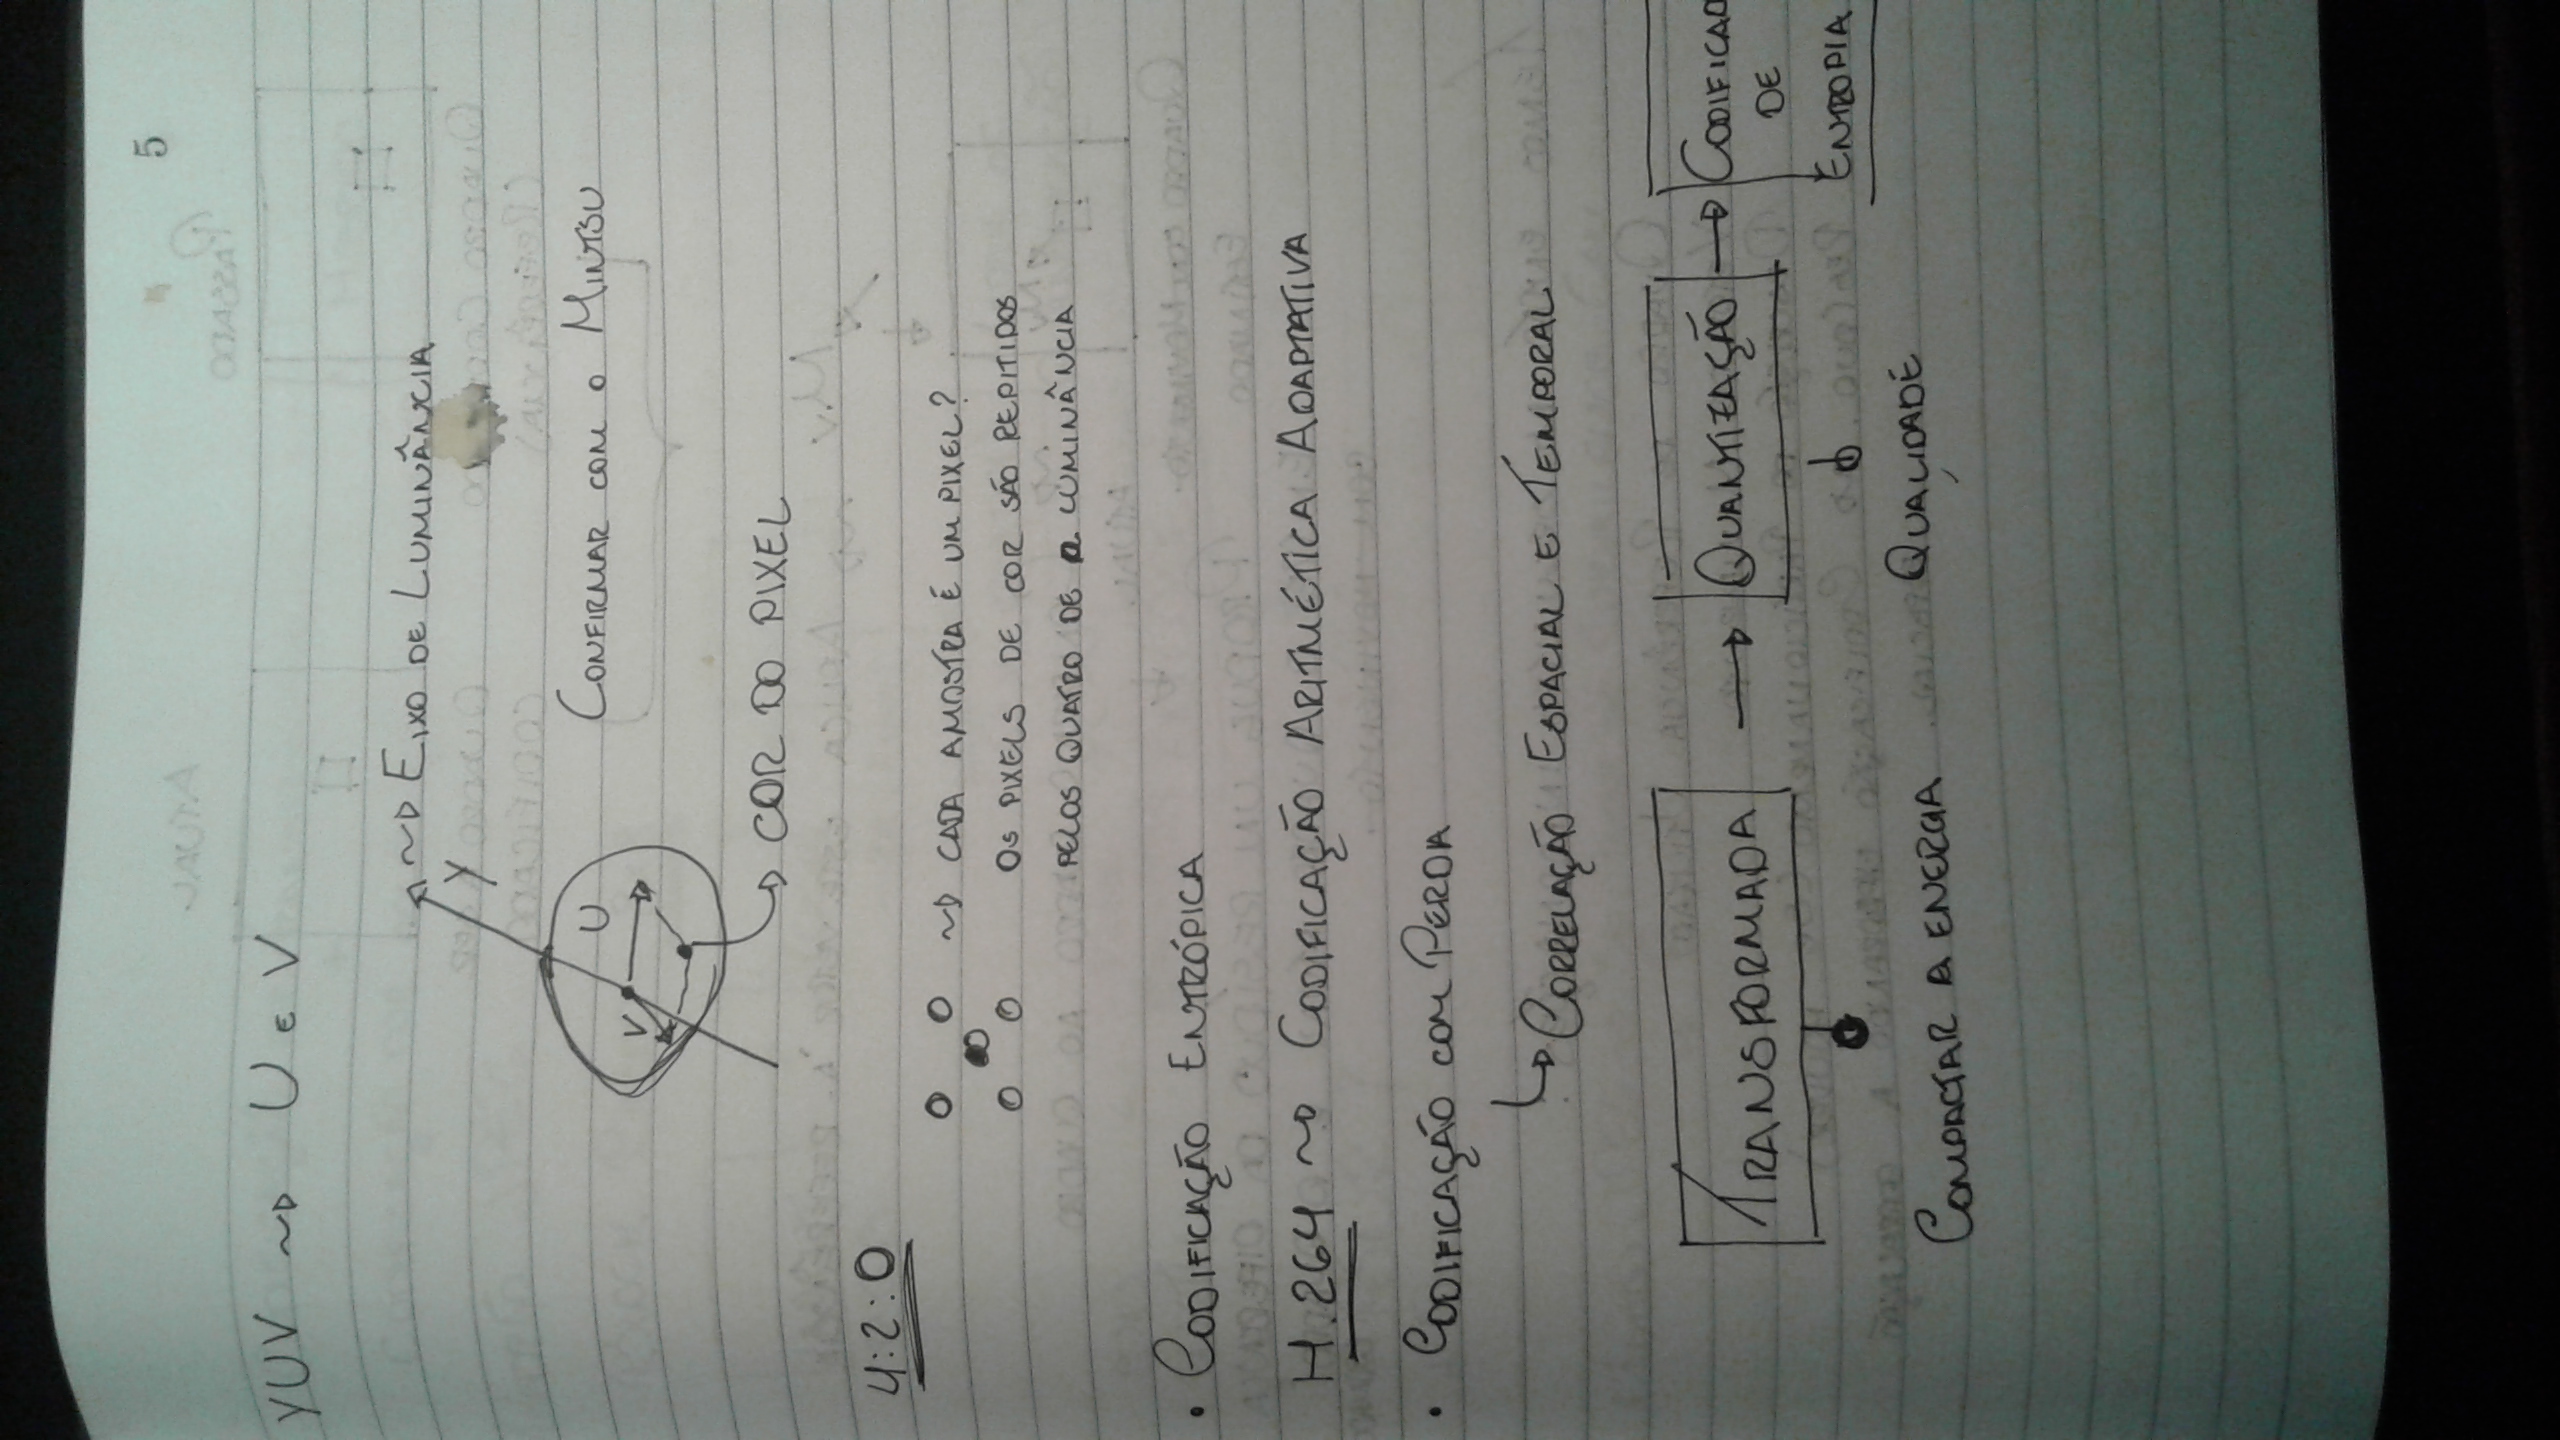 5
YUV ~> U E V
~> EIXO DE LUMINÂNCIA
Y
U
V
CONFIRMAR COM O MINTSU
COR DO PIXEL
4:2:0
~> CADA AMOSTRA É UM PIXEL?
OS PIXELS DE COR SÃO REPITIDOS
PELOS QUATRO DE LUMINÂNCIA
• CODIFICAÇÃO ENTRÓPICA
H.264 ~> CODIFICAÇÃO ARITMÉTICA ADAPTATIVA
• CODIFICAÇÃO COM PERDA
↳ CORRELAÇÃO ESPACIAL E TEMPORAL
TRANSFORMADA → QUANTIZAÇÃO → CODIFICAD
DE
ENTROPIA
COMPACTAR A ENERGIA
QUALIDADE